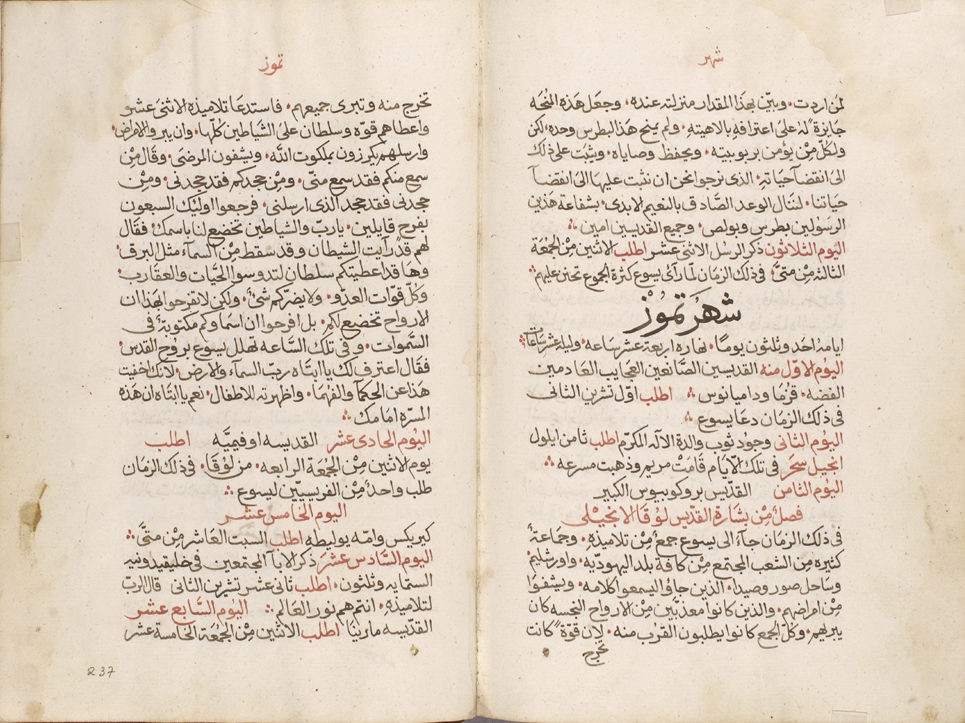 شهر
لمن اردت • وبيّن بهذا المقدار منزلته عنده • وجعل هذه المنحه
جايزة له على اعترافه بالاهيته • ولم يمنح هذا لبطرس وحده • لكن
ولكل من يؤمن بربوبيته • ويحفظ وصاياه • ويثبت على ذلك
الى انقضا حياته • الذى نرجوا نحن ان نثبت عليها الى انقضا
حياتنا • لننال الوعد الصادق بالنعيم الابدى • بشفاعة هذين
الرسولين بطرس وبولص • وجميع القديسين امين ⁘
اليوم الثلاثون ذكر الرسل الاثنى عشر اطلب الاثنين من الجمعة
الثالثه من متى • فى ذلك الزمان لما راى يسوع كثرة الجموع تحنن عليهم ⁘
شهر تموز
ايامه احد وثلثون يومًا • نهاره اربعة عشر ساعه • وليله عشر ساعات ⁘
اليوم الاول منه القديسين الصانعين العجايب العادمين
الفضه • قزما وداميانوس ⁘ اطلب اول تشرين الثانى
فى ذلك الزمان دعا يسوع ⁘
اليوم الثانى وجود ثوب والدة الاله المكرم اطلب ثامن ايلول
انجيل سحر فى تلك الايام قامت مريم وذهبت مسرعه ⁘
اليوم الثامن القديس بروكوبيوس الكبير
فصل من بشارة القديس لوقا الانجيلى
فى ذلك الزمان جاء الى يسوع جمع من تلاميذه • وجماعة
كثيره من الشعب المجتمع من كافة بلد اليهوديه • واورشليم
وساحل صور وصيدا • الذين جاوا ليسمعوا كلامه • ويشفوا
من امراضهم • والذين كانوا معذبين من الارواح النجسه كان
يبريهم • وكل الجمع كانوا يطلبون القرب منه • لان قوة كانت
تخرج
تموز
تخرج منه وتبرى جميعهم • فاستدعا تلاميذه الاثنى عشر
واعطاهم قوه وسلطان على الشياطين كلها • وان يبروا الامراض •
وارسلهم يكرزون بملكوت الله • ويشفون المرضى • وقال من
سمع منكم فقد سمع منى • ومن جحدكم فقد جحدنى • ومن
جحدنى فقد جحد الذى ارسلنى • فرجعوا اوليك السبعون
بفرح قايلين • يارب والشياطين تخضع لنا باسمك • فقال
لهم قد رايت الشيطان وقد سقط من السماء مثل البرق •
وها قد اعطيتكم سلطان لتدوسوا الحيات والعقارب •
وكل قوات العدو • ولا يضركم شئ • ولكن لا تفرحوا بهذا ان
الارواح تخضع لكم • بل افرحوا ان اسماوكم مكتوبة فى
السموات • وفى تلك الساعه تهلل يسوع بروح القدس •
فقال اعترف لك يا ابتاه رب السماء والارض • لانك اخفيت
هذا عن الحكما والفهما • واظهرته للاطفال • نعم يا ابتاه ان هذه
المسره امامك ⁘
اليوم الحادى عشر القديسه اوفيميه اطلب
يوم الاثنين من الجمعة الرابعه • من لوقا • فى ذلك الزمان
طلب واحد من الفريسيين ليسوع ⁘
اليوم الخامس عشر
كيريكس وامه يوليطه اطلب السبت العاشر من متى ⁘
اليوم السادس عشر ذكر الابا المجتمعين فى خليقيدونيه
الستمايه وثلثون • اطلب ثانى عشر تشرين الثانى قال الرب
لتلاميذه • انتم هم نور العالم ⁘ اليوم السابع عشر
القديسه مارينا اطلب الاثنين من الجمعة الخامسة عشر
237